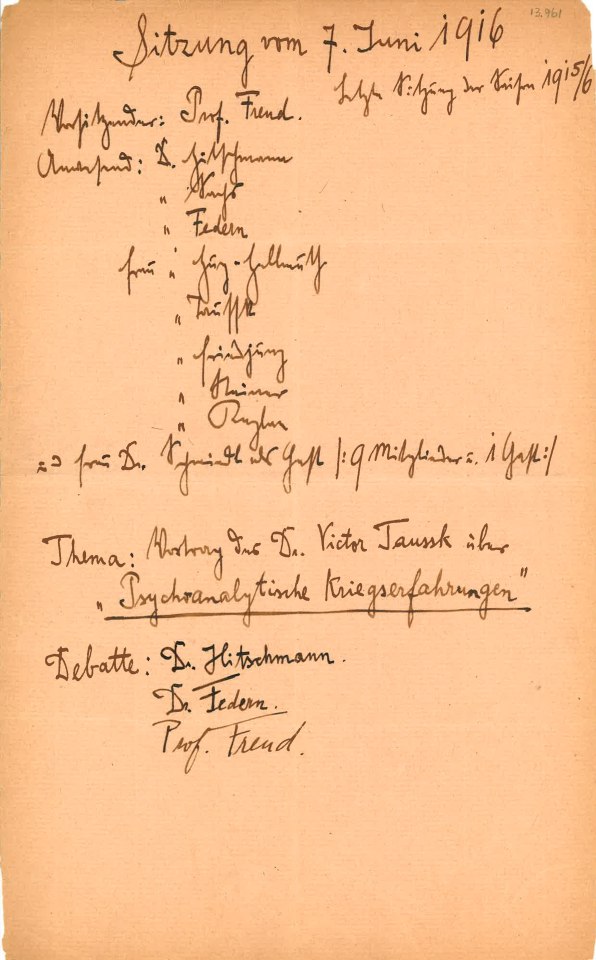 13.961
Sitzung vom 7. Juni 1916
Letzte Sitzung der Saison 1915/6
Vorsitzender: Prof. Freud.
Anwesend: Dr. Hitschmann
" Sachs
" Federn
Frau " Hug-Hellmuth
" Taussk
" Friedjung
" Steiner
"
Frau Dr. Schmidt als Gast |: 9 Mitglieder u. 1 Gast :|
Thema: Vortrag des Dr. Victor Taussk über
„Psychoanalytische Kriegserfahrungen"
Debatte: Dr. Hitschmann.
Dr. Federn.
Prof. Freud.